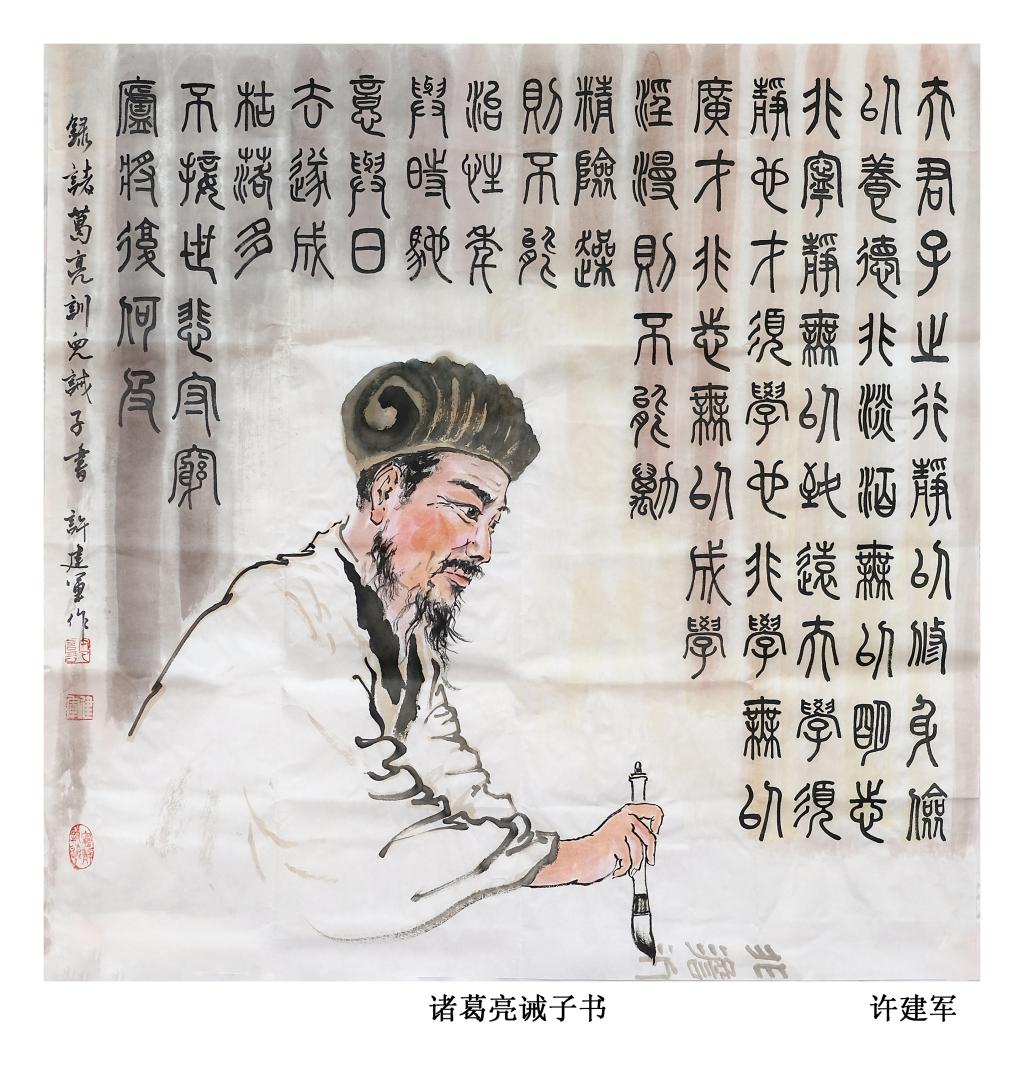 夫君子之行靜以修身儉
以養德非淡泊無以明志
非寧靜無以致遠夫學須
靜也才須學也非學無以
廣才非志無以成學
淫漫則不能勵
精險躁
則不能
治性年
與時馳
意與日
去遂成
枯落多
不接世悲守窮
廬將復何及
錄諸葛亮訓兒誡子書 許建軍作
非澹
诸葛亮诫子书
许建军